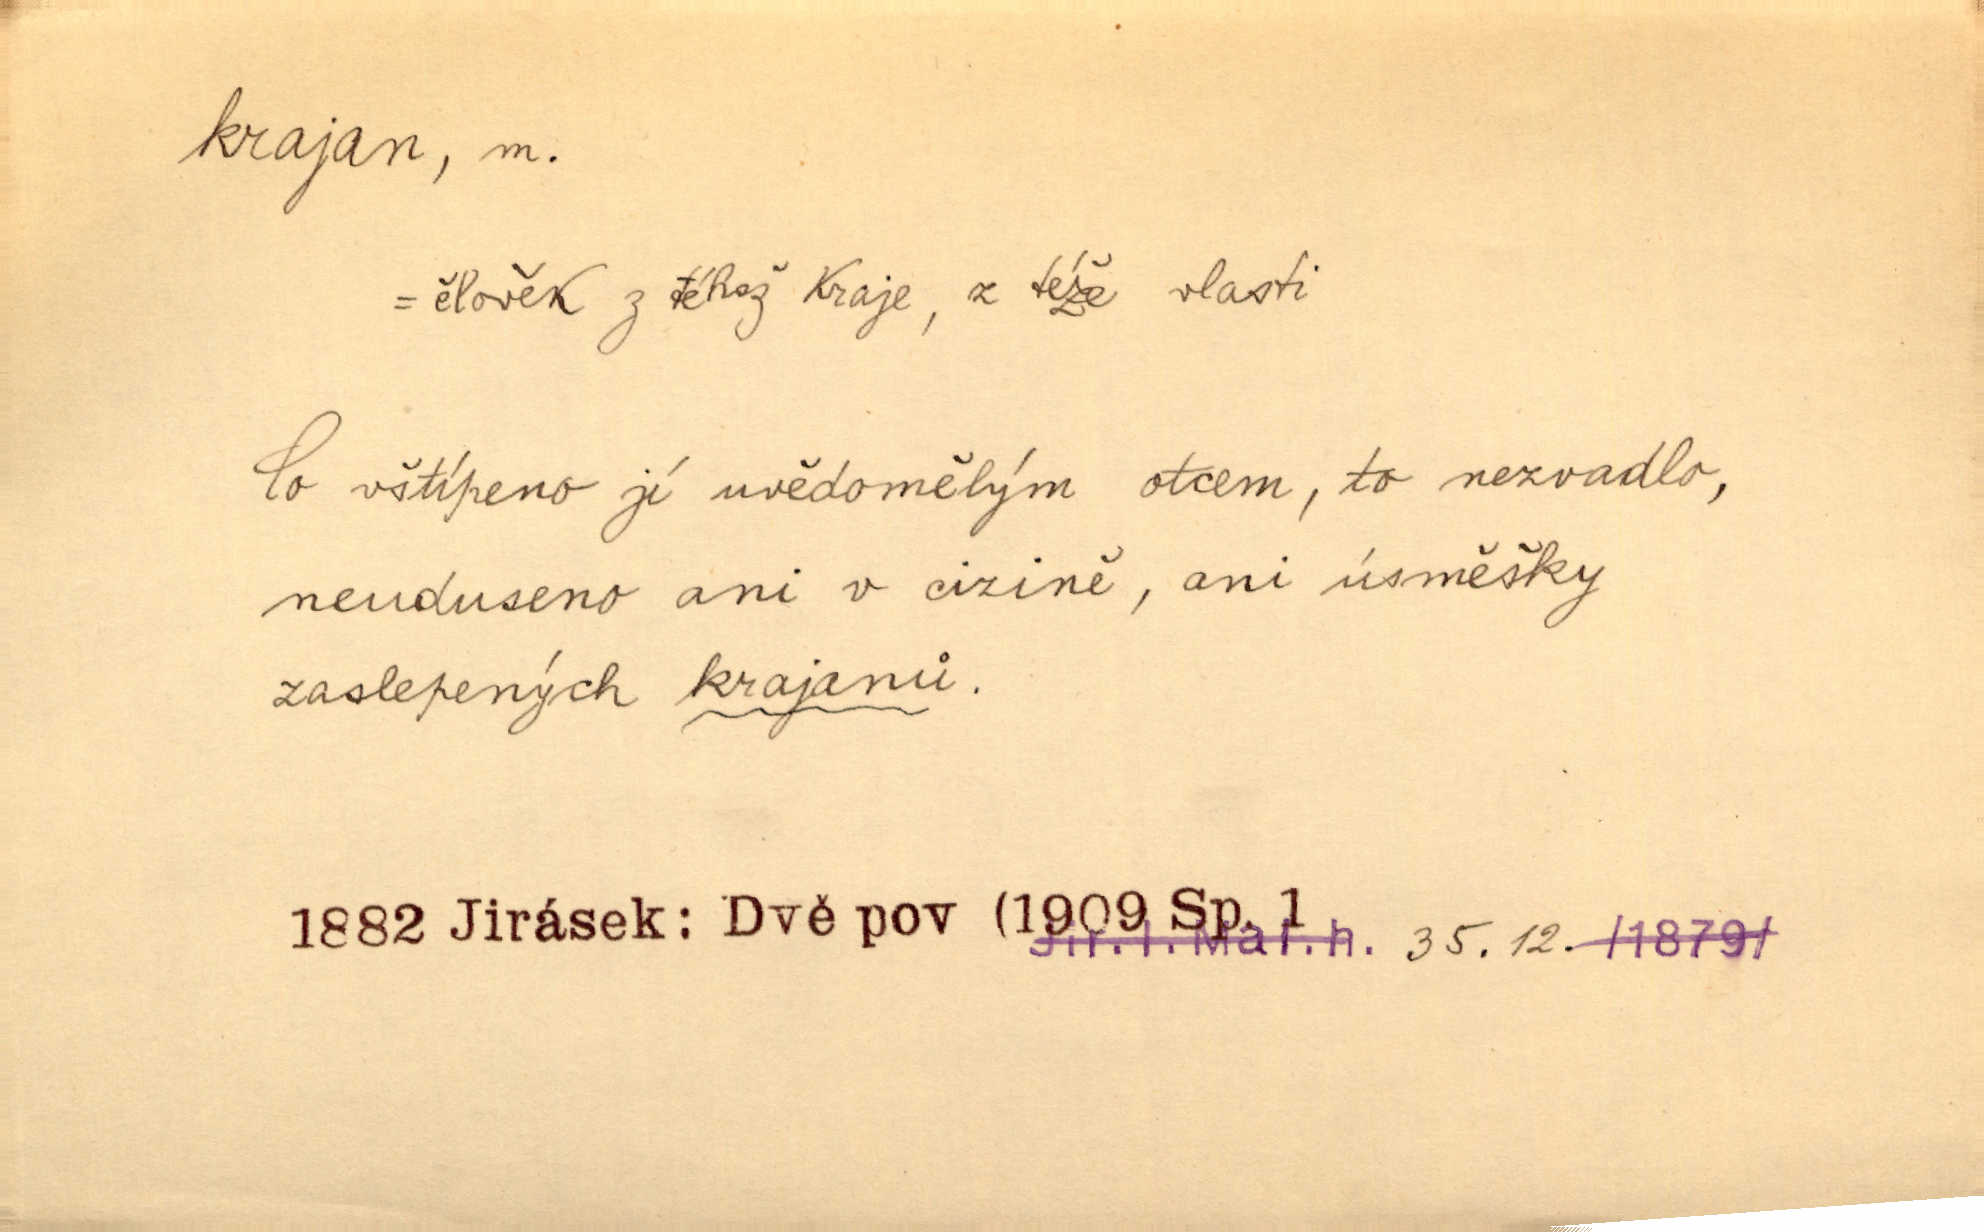 krajan, m.
= člověk z téhož kraje, z téže vlasti
Co vštípeno jí uvědomělým otcem, to nezvadlo,
neuduseno ani v cizině, ani úsměšky
zaslepených krajanů.
1882 Jirásek: Dvě pov (1909 Sp. 1
Jir. I. Mal. h. 35. 12. /1879/